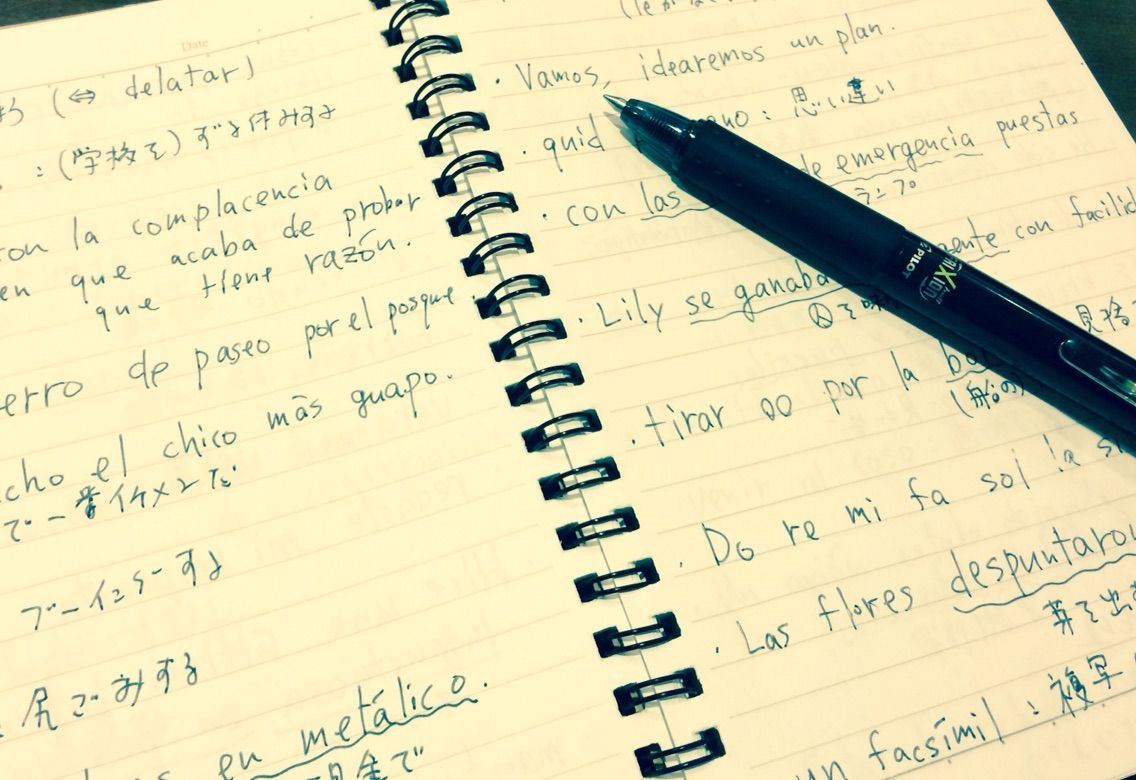 Date
(⇔ delatar)
: (学校を)
con la complacencia
en que acaba de probar
que tiene razón.
de paseo por el posque.
el chico más guapo.
で一番イケメンだ
ブーイングする
尻ごみする
en metálico.
現金で
· Vamos, idearemos un plan.
· quid : 思い違い
· con las de emergencia puestas
· Lily se ganaba con facilid
· tirar ○○ por la
(船の)
· Do re mi fa sol la si
· Las flores despuntaron
芽を出
un facsímil : 複写
PILOT
FRIXION